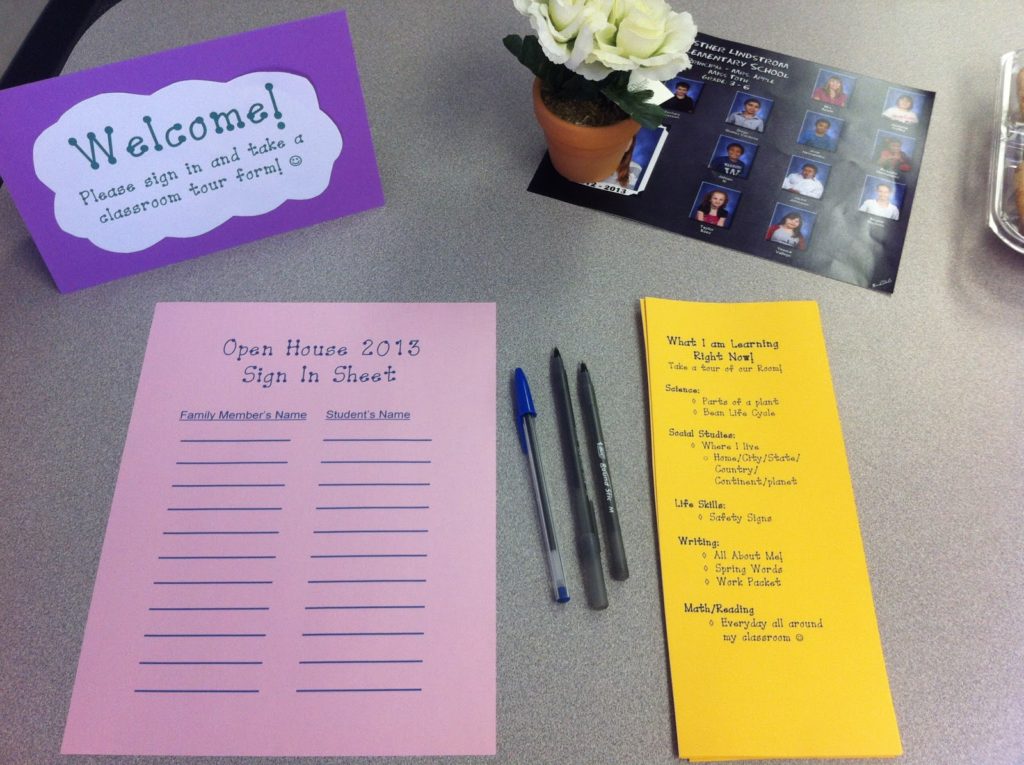 Welcome!
Please sign in and take a
classroom tour form! ☺
ESTHER LINDSTROM
ELEMENTARY SCHOOL
PRINCIPAL - MRS. APPLE
MISS TOTH
GRADE 3-6
2012 - 2013
Open House 2013
Sign In Sheet
Family Member's Name Student's Name
Round Stic M
What I am Learning
Right Now!
Take a tour of our Room!
Science:
◊ Parts of a plant
◊ Bean Life Cycle
Social Studies:
◊ Where I live
○ Home/City/State/
Country/
Continent/planet
Life Skills:
◊ Safety Signs
Writing:
◊ All About Me!
◊ Spring Words
◊ Work Packet
Math/Reading
◊ Everyday all around
my classroom ☺